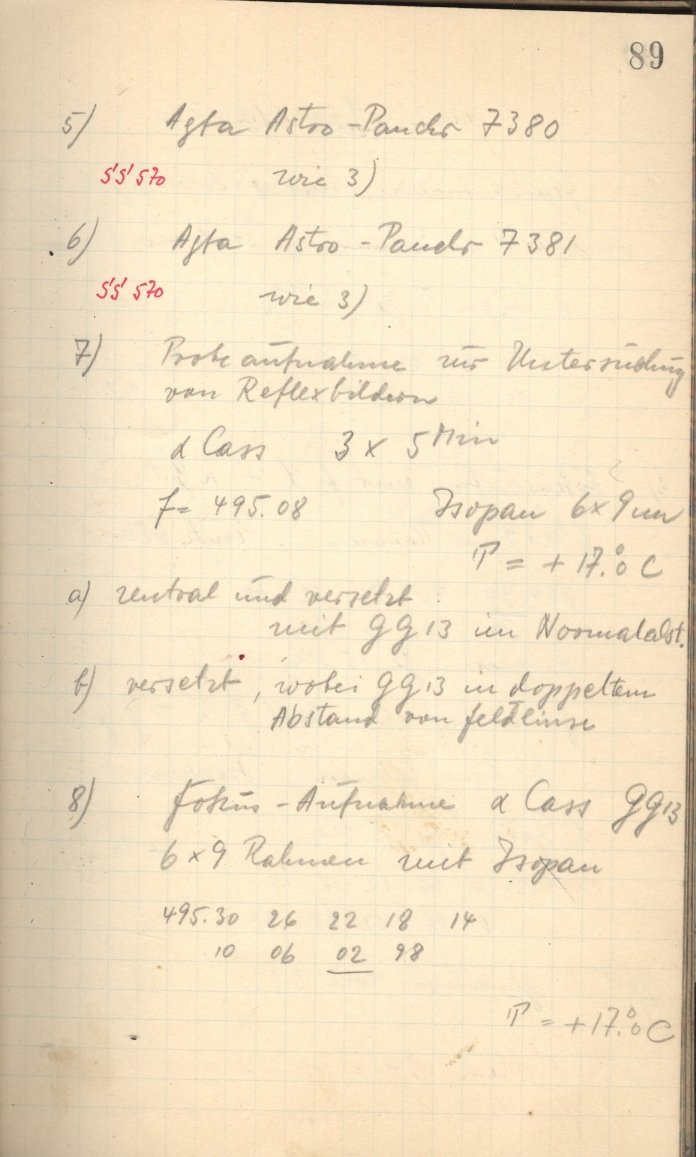 89
5) Agfa Astro-Panchr 7380
SS 570 wie 3)
6) Agfa Astro-Panchr 7381
SS 570 wie 3)
7) Probeaufnahme zur Untersuchung
von Reflexbildern
α Cass 3 x 5 Min
f = 495.08 Isopan 6x9 cm
T = + 17.°0 C
a) zentral und versetzt
mit GG13 im Normalabst.
b) versetzt, wobei GG13 in doppeltem
Abstand von Feldlinse
8) Fokus-Aufnahme α Cass GG13
6x9 Rahmen mit Isopan
495.30 26 22 18 14
10 06 02 98
T = +17.°0 C